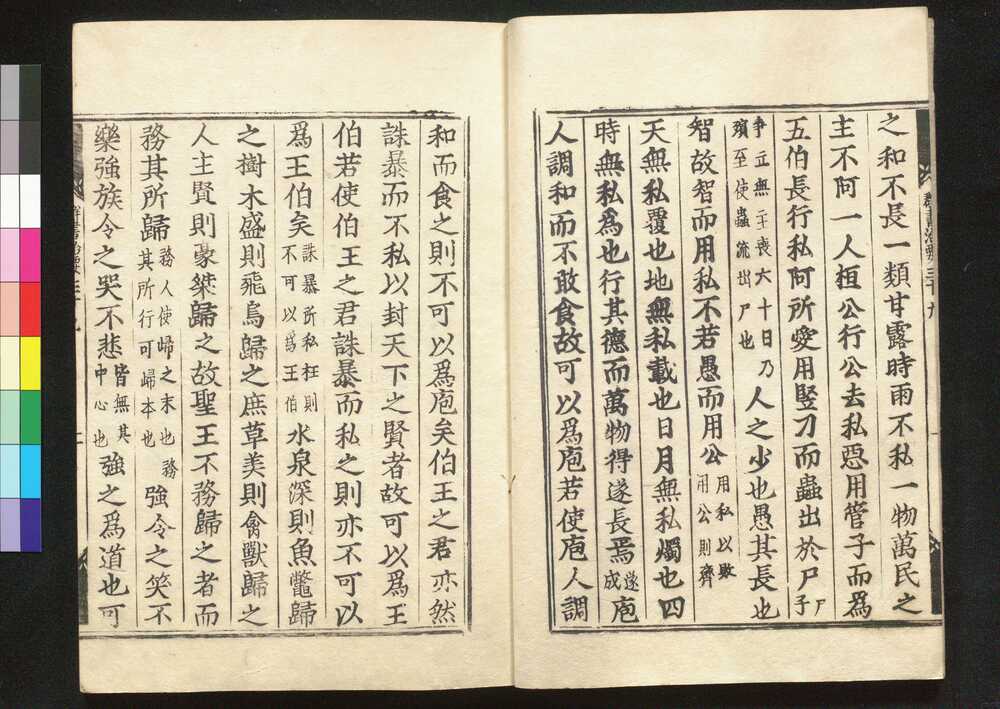 之和不長一類甘露時雨不私一物萬民之
主不阿一人桓公行公去私惡用管子而爲
五伯長行私阿所愛用竪刁而蟲出於尸尸子
爭立無主喪六十日乃殯至使蟲流出尸也人之少也愚其長也
智故智而用私不若愚而用公用私以敗用公則齊
天無私覆也地無私載也日月無私燭也四
時無私爲也行其德而萬物得遂長焉遂成庖
人調和而不敢食故可以爲庖若使庖人調
和而食之則不可以爲庖矣伯王之君亦然
誅暴而不私以封天下之賢者故可以爲王
伯若使伯王之君誅暴而私之則亦不可以
爲王伯矣誅暴所私枉則不可以爲王伯水泉深則魚鼈歸
之樹木盛則飛鳥歸之庶草美則禽獸歸之
人主賢則豪桀歸之故聖王不務歸之者而
務其所歸務人使歸之末也務其所行可歸本也強令之笑不
樂強族令之哭不悲皆無其中心也強之爲道也可
群書治要三十九